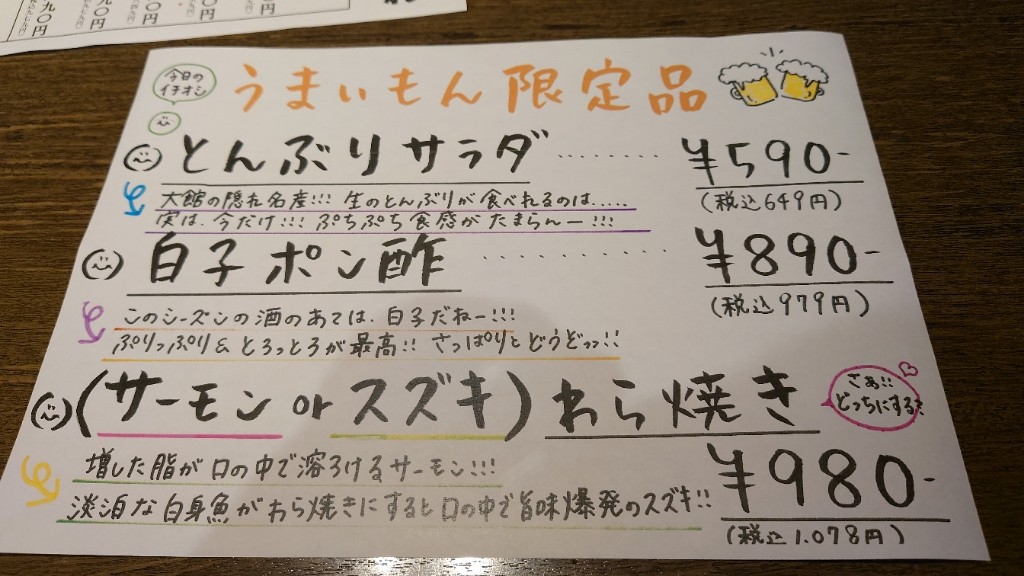 九〇円
〇円
九〇円
〇円
今日の
イチオシ
うまいもん限定品
とんぶりサラダ ......... ¥590-
(税込649円)
大館の隠れ名産!!! 生のとんぶりが食べれるのは.....
実は、今だけ!!! ぷちぷち食感がたまらんー!!!
白子ポン酢 ......... ¥890-
(税込979円)
このシーズンの酒のあては、白子だねー!!!
ぷりっぷり&とろっとろが最高!! さっぱりとどうどっ!!
(サーモン or スズキ)わら焼き
さぁ!!
どっちにする?
¥980-
(税込1.078円)
増した脂が口の中で溶ろけるサーモン!!!
淡泊な白身魚がわら焼きにすると口の中で旨味爆発のスズキ!!